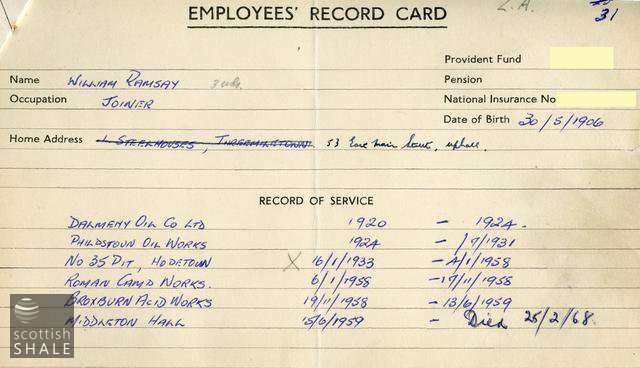 L.A.
31
EMPLOYEES' RECORD CARD
Provident Fund
Name WILLIAM RAMSAY
Pension
Occupation JOINER
National Insurance No
Date of Birth 30/5/1906
Home Address 1 STEELHOUSES, THREEMILETOWN 53 East Main Street, Uphall.
RECORD OF SERVICE
DALMENY OIL CO LTD 1920 – 1924.
PHILPSTOUN OIL WORKS 1924 – /7/1931
No 35 PIT, HODETOWN X 16/1/1933 – 4/1/1958
ROMAN CAMP WORKS. 6/1/1958 – 17/11/1958
BROXBURN ACID WORKS 19/11/1958 – 13/6/1959
MIDDLETON HALL 15/6/1959 – Died 25/2/68.
scottish
SHALE